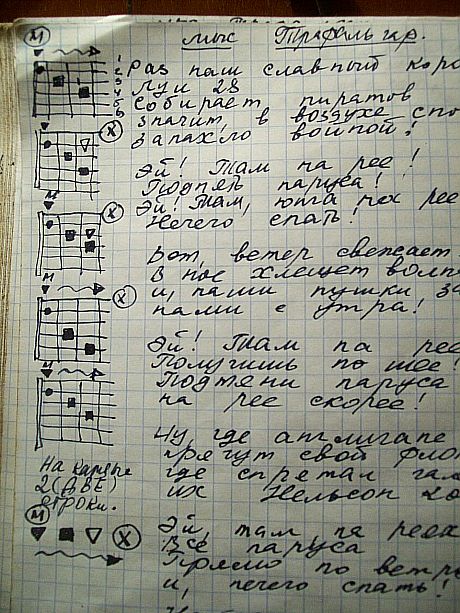 мыс Трафальгар.
Раз наш славный коро
Луи 28
Собирает пиратов
значит, в воздухе спо
Запахло войной!
Эй! Там на рее!
Поднять паруса!
Эй! Там, юнга на рее
Нечего спать!
Вот, ветер свежает
В нос хлещет волна
и, наши пушки за
нами с утра!
Эй! Там на рее
Получишь по шее!
Подтяни паруса
на рее скорее!
Чу, где англичане
прячут свой фло
где спрятал гал
их Нельсон
На каждые
2 (ДВЕ)
строки.
Эй, там, на реях
Все паруса
Прямо по ветр
и, нечего спать!